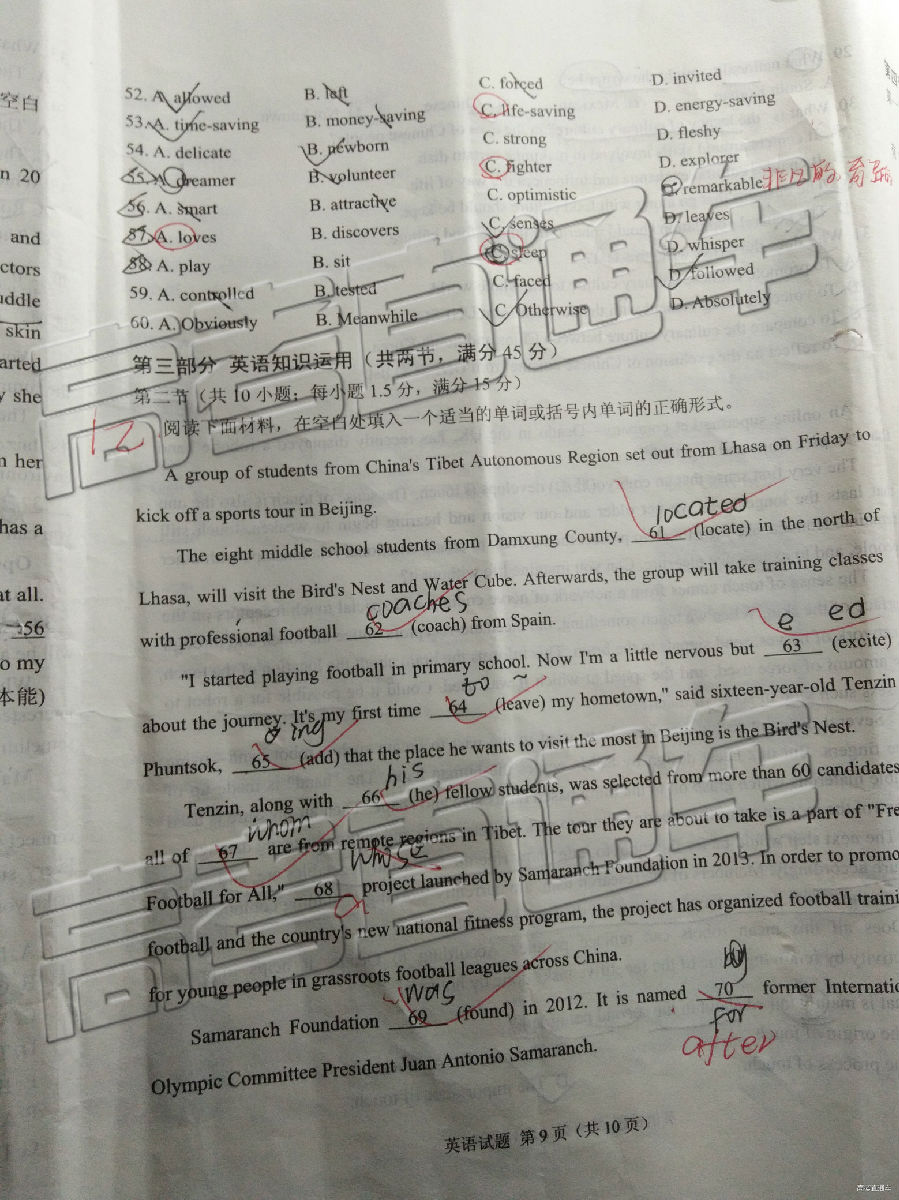 52. A. allowed B. left C. forced D. invited
53. A. time-saving B. money-saving C. life-saving D. energy-saving
54. A. delicate B. newborn C. strong D. fleshy
55. A. dreamer B. volunteer C. fighter D. explorer
56. A. smart B. attractive C. optimistic D. remarkable 非凡的
57. A. loves B. discovers C. senses D. leaves
58. A. play B. sit C. sleep D. whisper
59. A. controlled B. tested C. faced D. followed
60. A. Obviously B. Meanwhile C. Otherwise D. Absolutely
第三部分 英语知识运用（共两节，满分 45 分）
第二节（共 10 小题；每小题 1.5 分，满分 15 分）
12
阅读下面材料，在空白处填入一个适当的单词或括号内单词的正确形式。
A group of students from China's Tibet Autonomous Region set out from Lhasa on Friday to
kick off a sports tour in Beijing.
located
The eight middle school students from Damxung County, 61 (locate) in the north of
Lhasa, will visit the Bird's Nest and Water Cube. Afterwards, the group will take training classes
coaches
with professional football 62 (coach) from Spain.
e ed
"I started playing football in primary school. Now I'm a little nervous but 63 (excite)
to ~
about the journey. It's my first time 64 (leave) my hometown," said sixteen-year-old Tenzin
ing
Phuntsok, 65 (add) that the place he wants to visit the most in Beijing is the Bird's Nest.
his
Tenzin, along with 66 (he) fellow students, was selected from more than 60 candidates
whom
all of 67 are from remote regions in Tibet. The tour they are about to take is a part of "Fre
whose
Football for All," 68 project launched by Samaranch Foundation in 2013. In order to promo
a
football and the country's new national fitness program, the project has organized football traini
for young people in grassroots football leagues across China.
was
by
Samaranch Foundation 69 (found) in 2012. It is named 70 former Internatio
for
after
Olympic Committee President Juan Antonio Samaranch.
英语试题 第 9 页（共 10 页）
空白
n 20
and
ctors
uddle
skin
arted
y she
n her
has a
at all.
56
o my
本能)
高考直通车
高考直通车